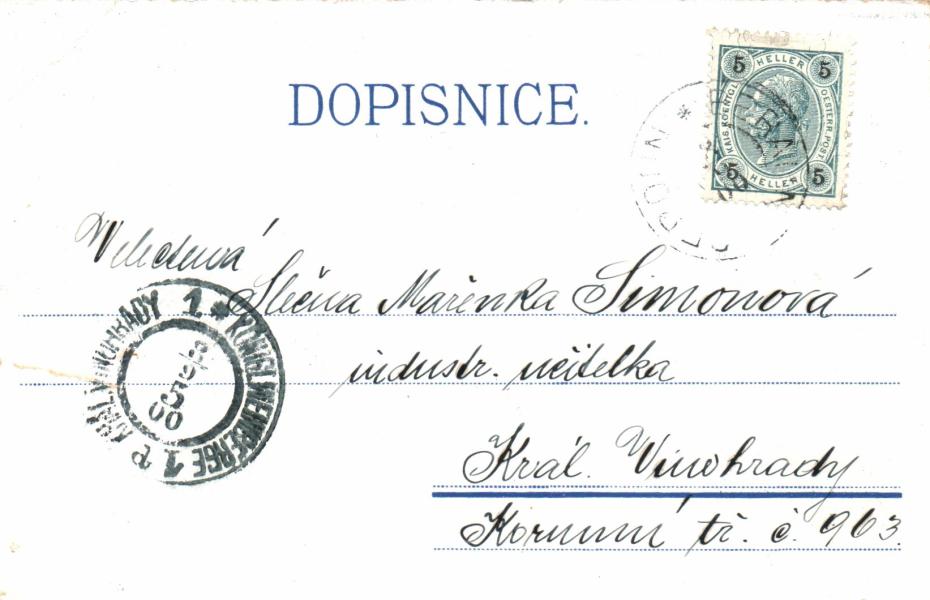 DOPISNICE.
5 HELLER 5
KAIS. KOENIGL. OESTERR. POST
5 HELLER 5
Velectená
Slečna Mařenka Simonová
industr. učitelka
KRÁL. VINOHRADY 1. * KÖNIGL. WEINBERGE 1
00
Král. Vinohrady
Korunní tř. č. 963.